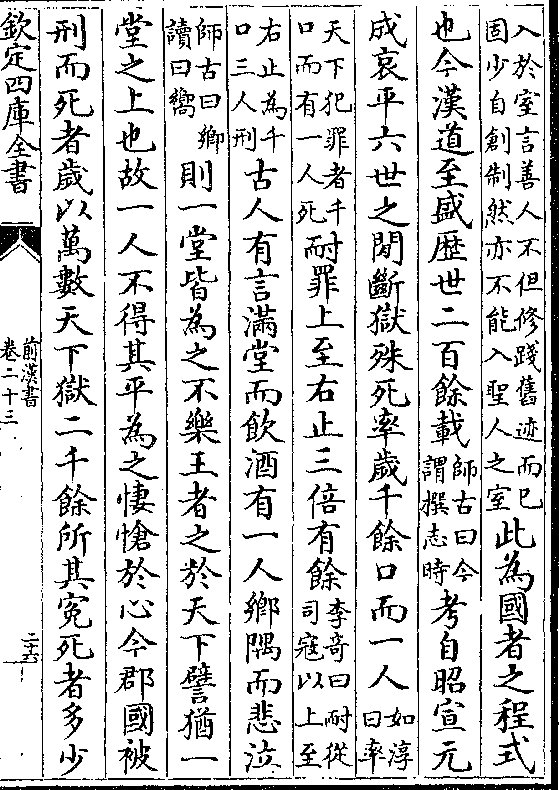 入於室言善人不但修踐舊迹而已
固少自創制然亦不能入聖人之室
此為國者之程式
也今漢道至盛歴世二百餘載
師古曰今
謂撰志時
考自昭宣元
成哀平六世之間斷獄殊死率歳千餘口而一人
如淳
曰率
天下犯罪者千
口而有一人死
耐罪上至右止三倍有餘
李奇曰耐從
司寇以上至
右止為千
口三人刑
古人有言滿堂而飲酒有一人鄉隅而悲泣
師古曰鄉
讀曰嚮
則一堂皆為之不樂王者之於天下譬猶一
堂之上也故一人不得其平為之悽愴於心今郡國被
刑而死者歳以萬數天下獄二千餘所其寃死者多少
欽定四庫全書
前漢書
卷二十三
二十六